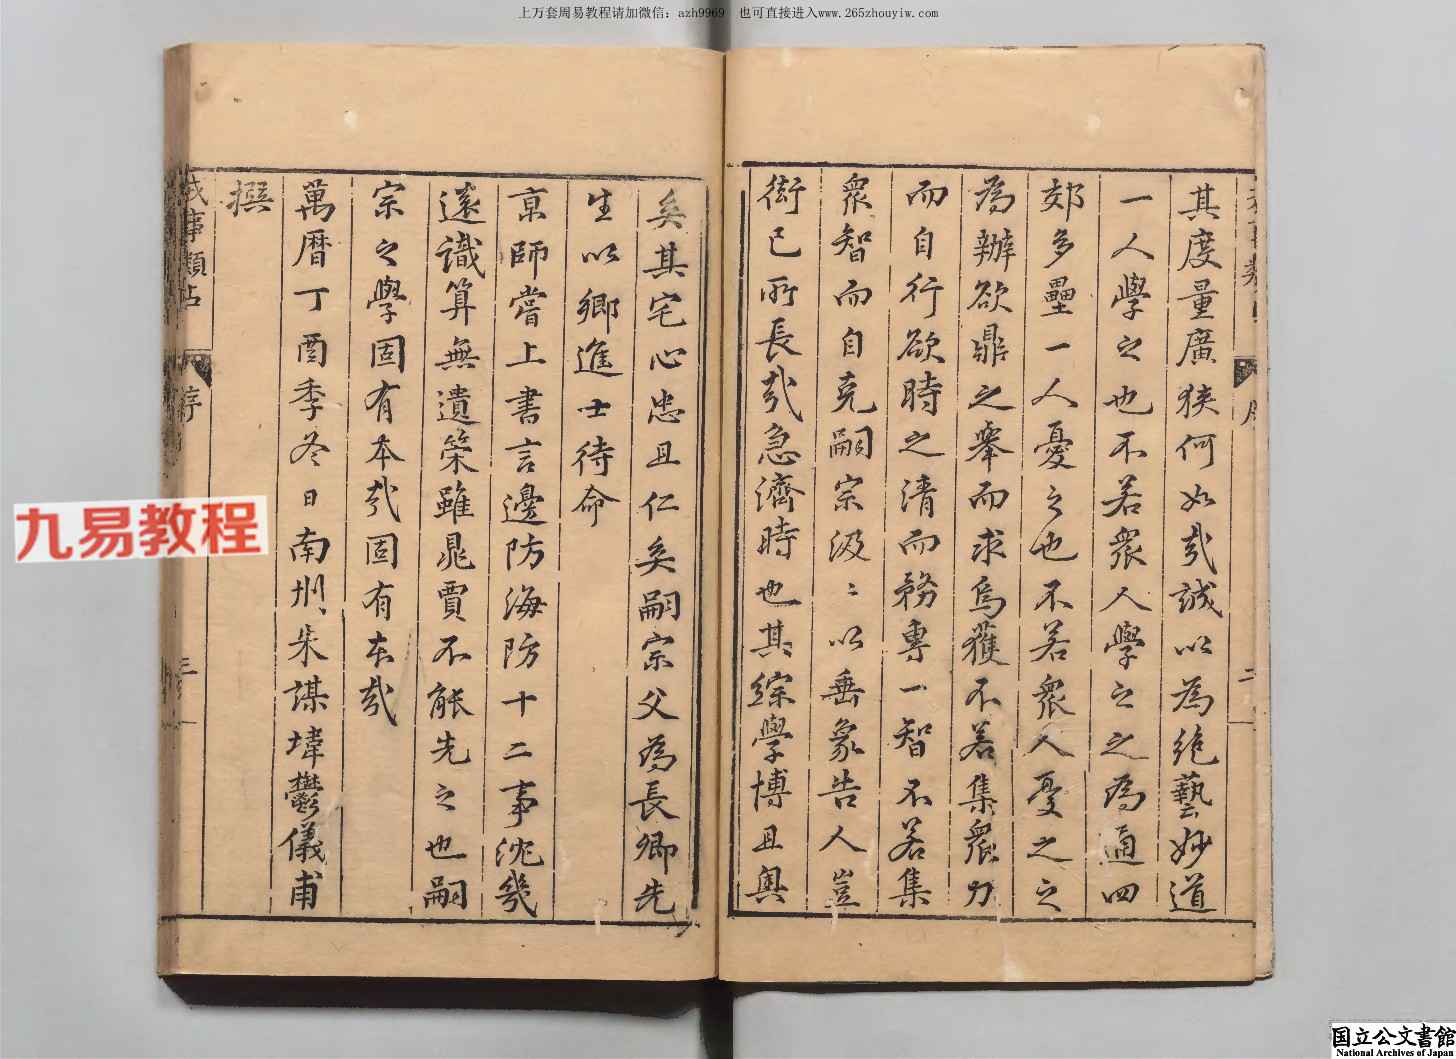 上万套周易教程请加微信：azh9969　也可直接进入www.265zhouyiw.com
其度量廣狹何如㢤誠以為絶藝妙道
一人學之也不若眾人學之之為通四
郊多壘一人憂之也不若眾人憂之之
為辦欲鼎之舉而求烏獲不若集眾力
而自行欲時之清而務專一智不若集
眾智而自克嗣宗汲〻以垂象告人豈
衒已所長㢤急濟時也其綜學博且奥
矣其宅心忠且仁矣嗣宗父為長卿先
生以鄉進士待命
京師嘗上書言邊防海防十二事沈幾
遠識算無遺策雖晁賈不能先之也嗣
宗之學固有本㢤固有本㢤
萬曆丁酉季冬日南州朱謀㙔鬱儀甫
撰
序
三
九易教程
国立公文書館
National Archives of Japan